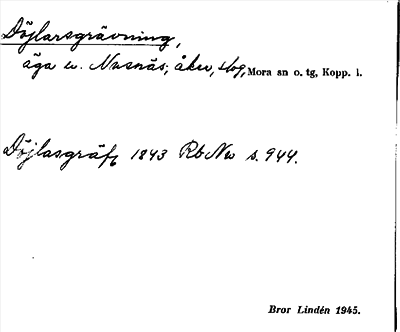 Döjlarsgrävning,
äga w. Nusnäs; åker, skog, Mora sn o. tg, Kopp. l.
Döjlasgräf, 1843 Rb Nw s. 944.
Bror Lindén 1945.